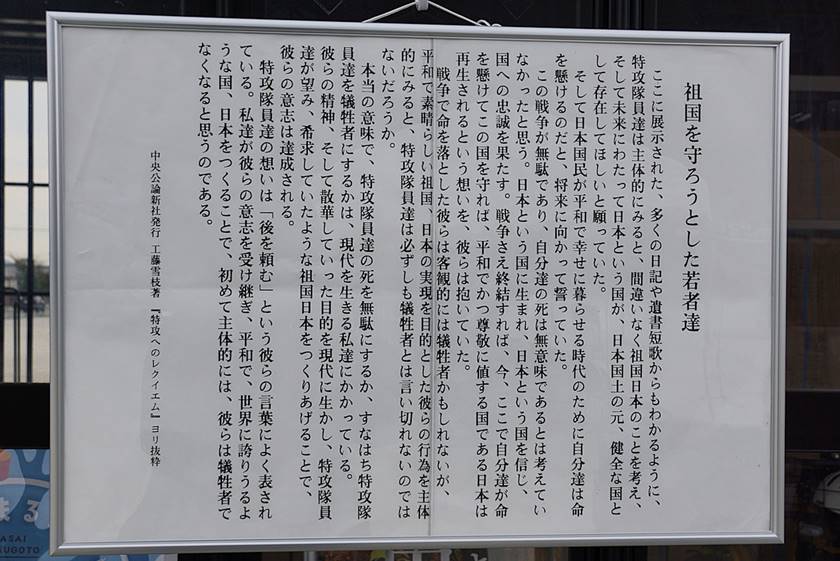 祖国を守ろうとした若者達
ここに展示された、多くの日記や遺書短歌からもわかるように、
特攻隊員達は主体的にみると、間違いなく祖国日本のことを考え、
そして未来にわたって日本という国が、日本国土の元、健全な国と
して存在してほしいと願っていた。
そして日本国民が平和で幸せに暮らせる時代のために自分達は命
を懸けるのだと、将来に向かって誓っていた。
この戦争が無駄であり、自分達の死は無意味であるとは考えてい
なかったと思う。日本という国に生まれ、日本という国を信じ、
国への忠誠を果たす。戦争さえ終結すれば、今、ここで自分達が命
を懸けてこの国を守れば、平和でかつ尊敬に値する国である日本は
再生されるという想いを、彼らは抱いていた。
戦争で命を落とした彼らは客観的には犠牲者かもしれないが、
平和で素晴らしい祖国、日本の実現を目的とした彼らの行為を主体
的にみると、特攻隊員達は必ずしも犠牲者とは言い切れないのでは
ないだろうか。
本当の意味で、特攻隊員達の死を無駄にするか、すなはち特攻隊
員達を犠牲者にするかは、現代を生きる私達にかかっている。
彼らの精神、そして散華していった目的を現代に生かし、特攻隊員
達が望み、希求していたような祖国日本をつくりあげることで、
彼らの意志は達成される。
特攻隊員達の想いは「後を頼む」という彼らの言葉によく表され
ている。私達が彼らの意志を受け継ぎ、平和で、世界に誇りうるよ
うな国、日本をつくることで、初めて主体的には、彼らは犠牲者で
なくなると思うのである。
中央公論新社発行 工藤雪枝著 『特攻へのレクイエム』ヨリ抜粋
まる
ASAI
UGOTO